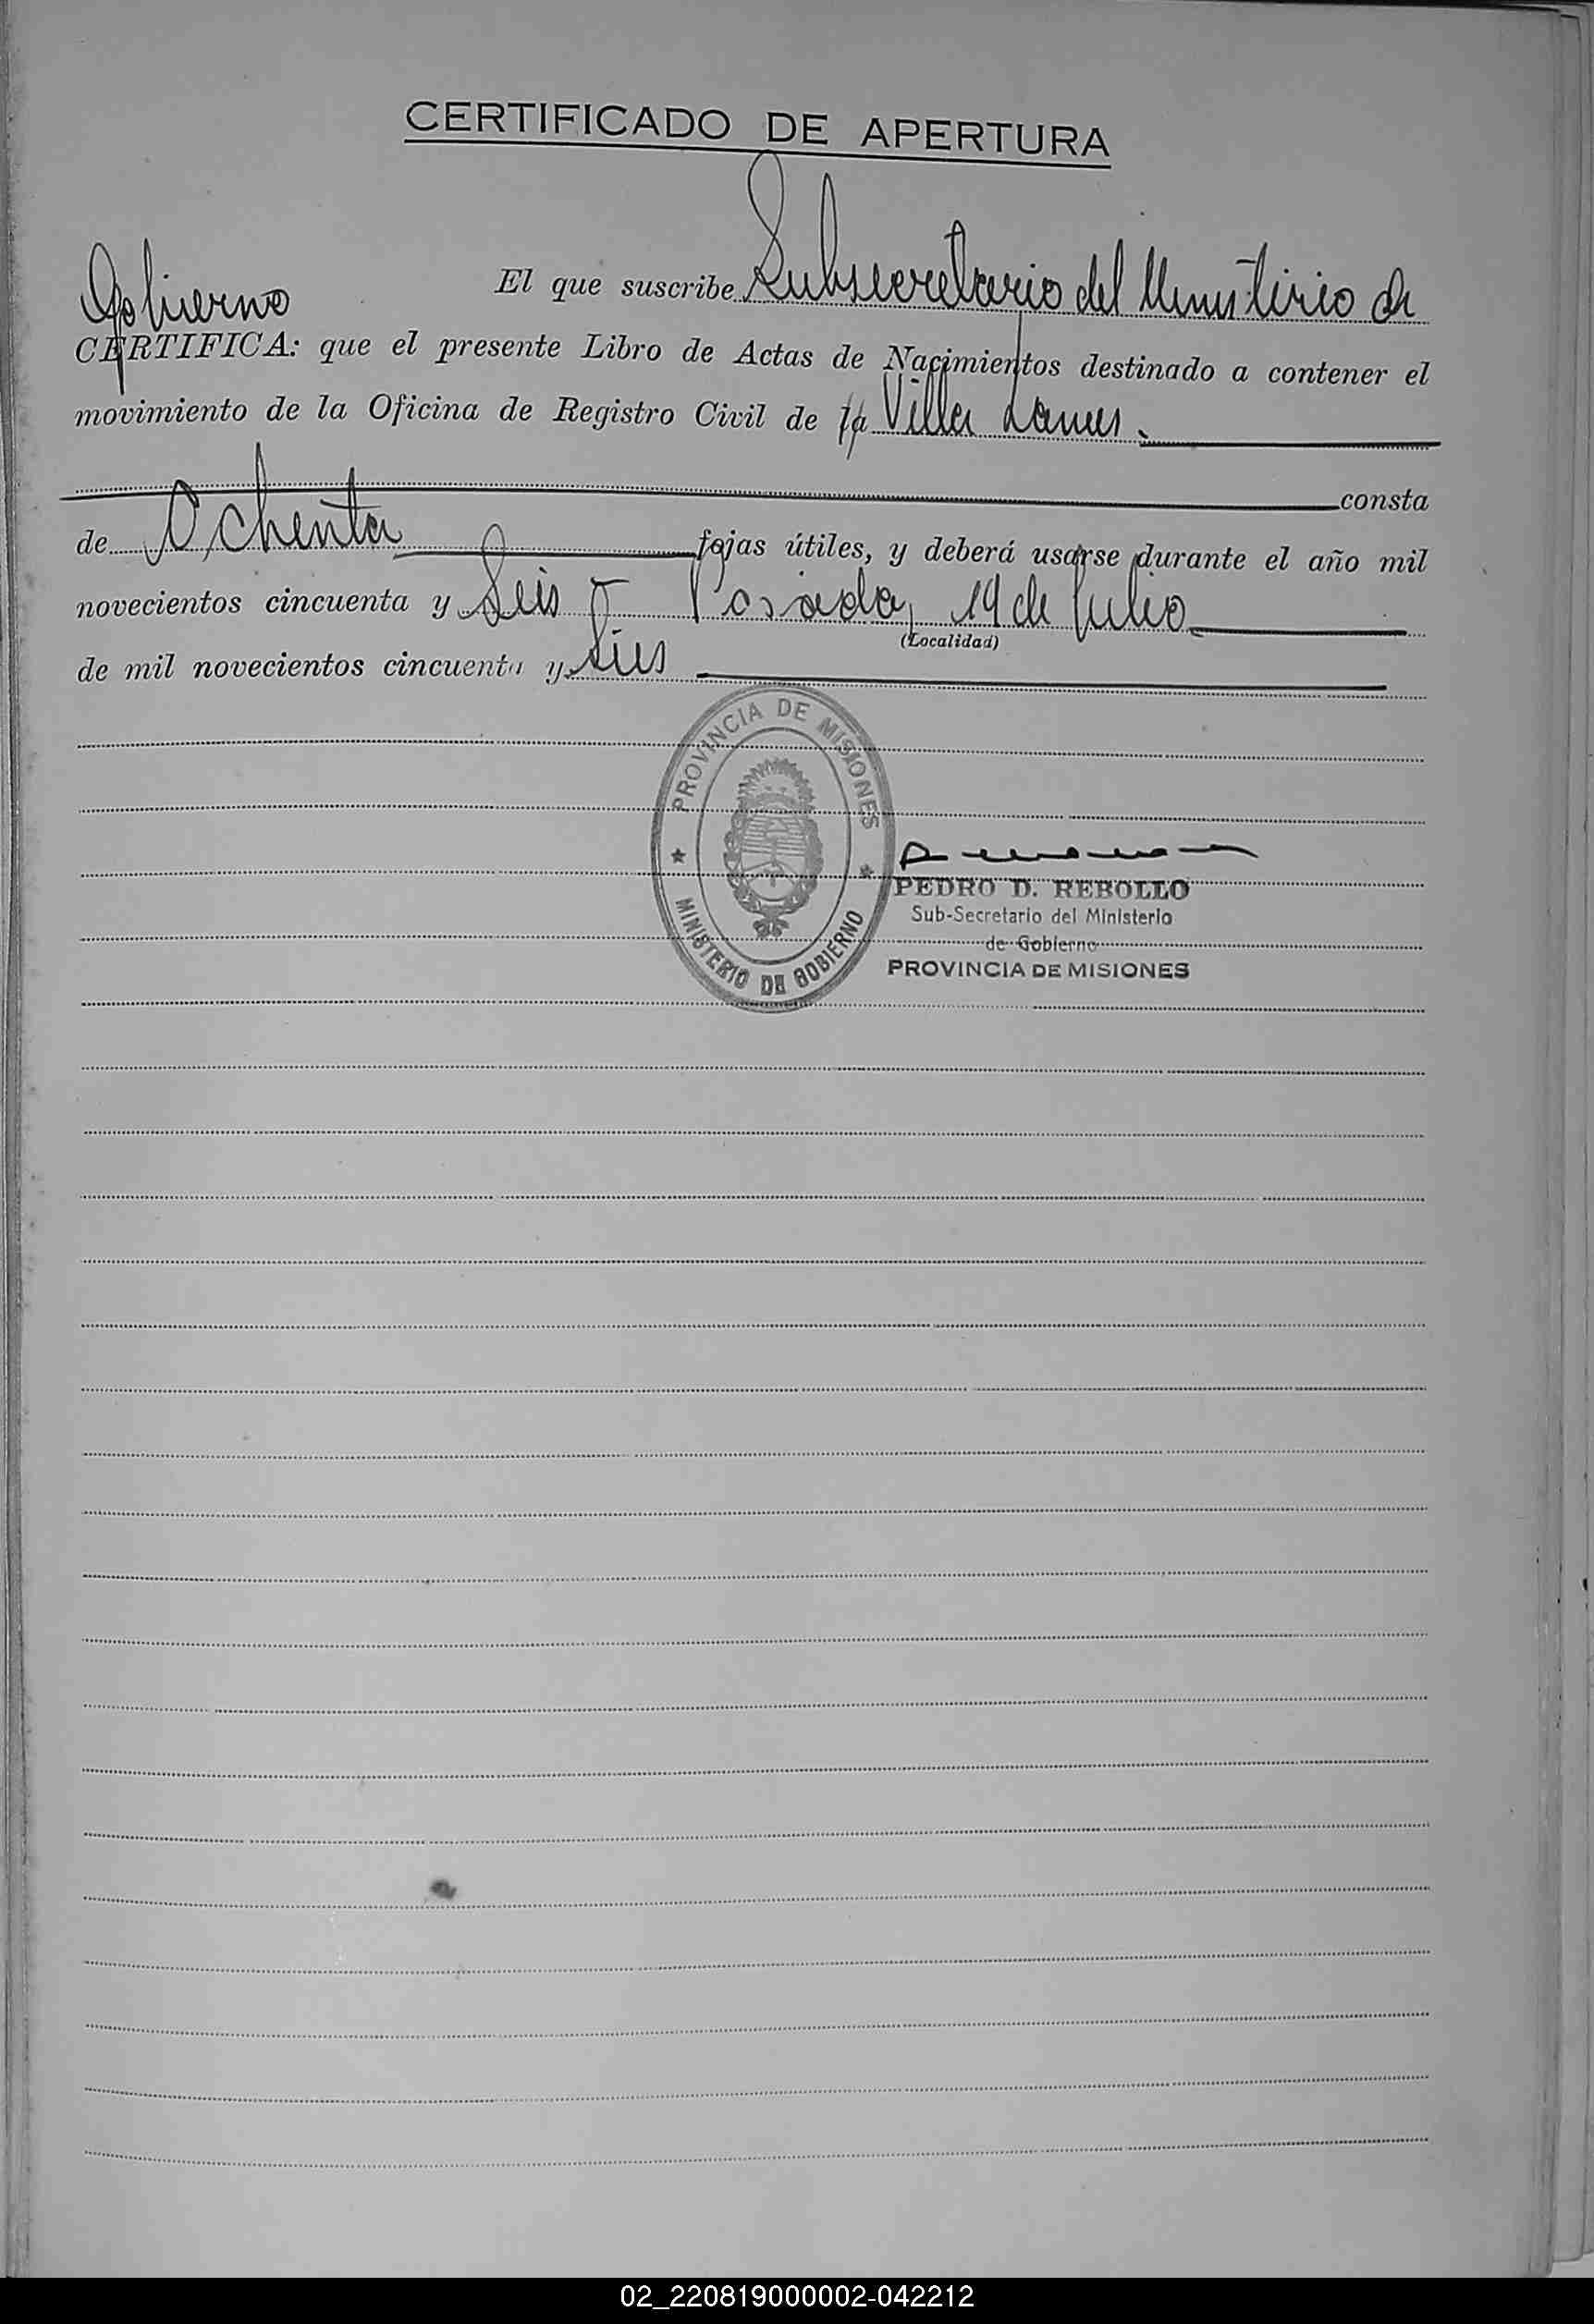 CERTIFICADO DE APERTURA
El que suscribe Subsecretario del Ministerio de
Gobierno
CERTIFICA: que el presente Libro de Actas de Nacimientos destinado a contener el
movimiento de la Oficina de Registro Civil de Villa Lanus.
consta
de Ochenta fojas útiles, y deberá usarse durante el año mil
novecientos cincuenta y Seis Posadas, 19 de Julio
(Localidad)
de mil novecientos cincuenta y Seis
PROVINCIA DE MISIONES
MINISTERIO DE GOBIERNO
PEDRO D. REBOLLO
Sub-Secretario del Ministerio
de Gobierno
PROVINCIA DE MISIONES
02_220819000002-042212